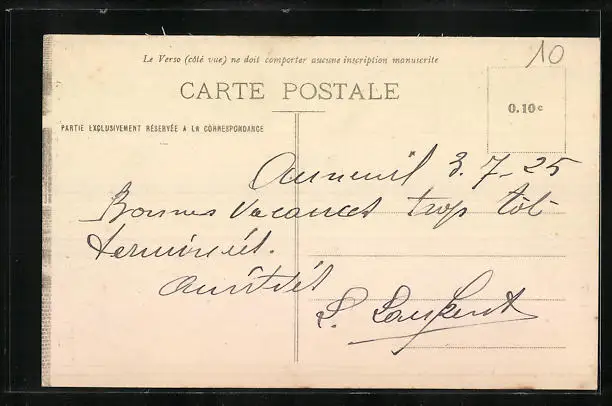 10
Le Verso (côté vue) ne doit comporter aucune inscription manuscrite
CARTE POSTALE
0.10c
PARTIE EXCLUSIVEMENT RÉSERVÉE A LA CORRESPONDANCE
Auneuil 3.7-25
Bonnes vacances trop tôt
terminées.
Amitiés
L.